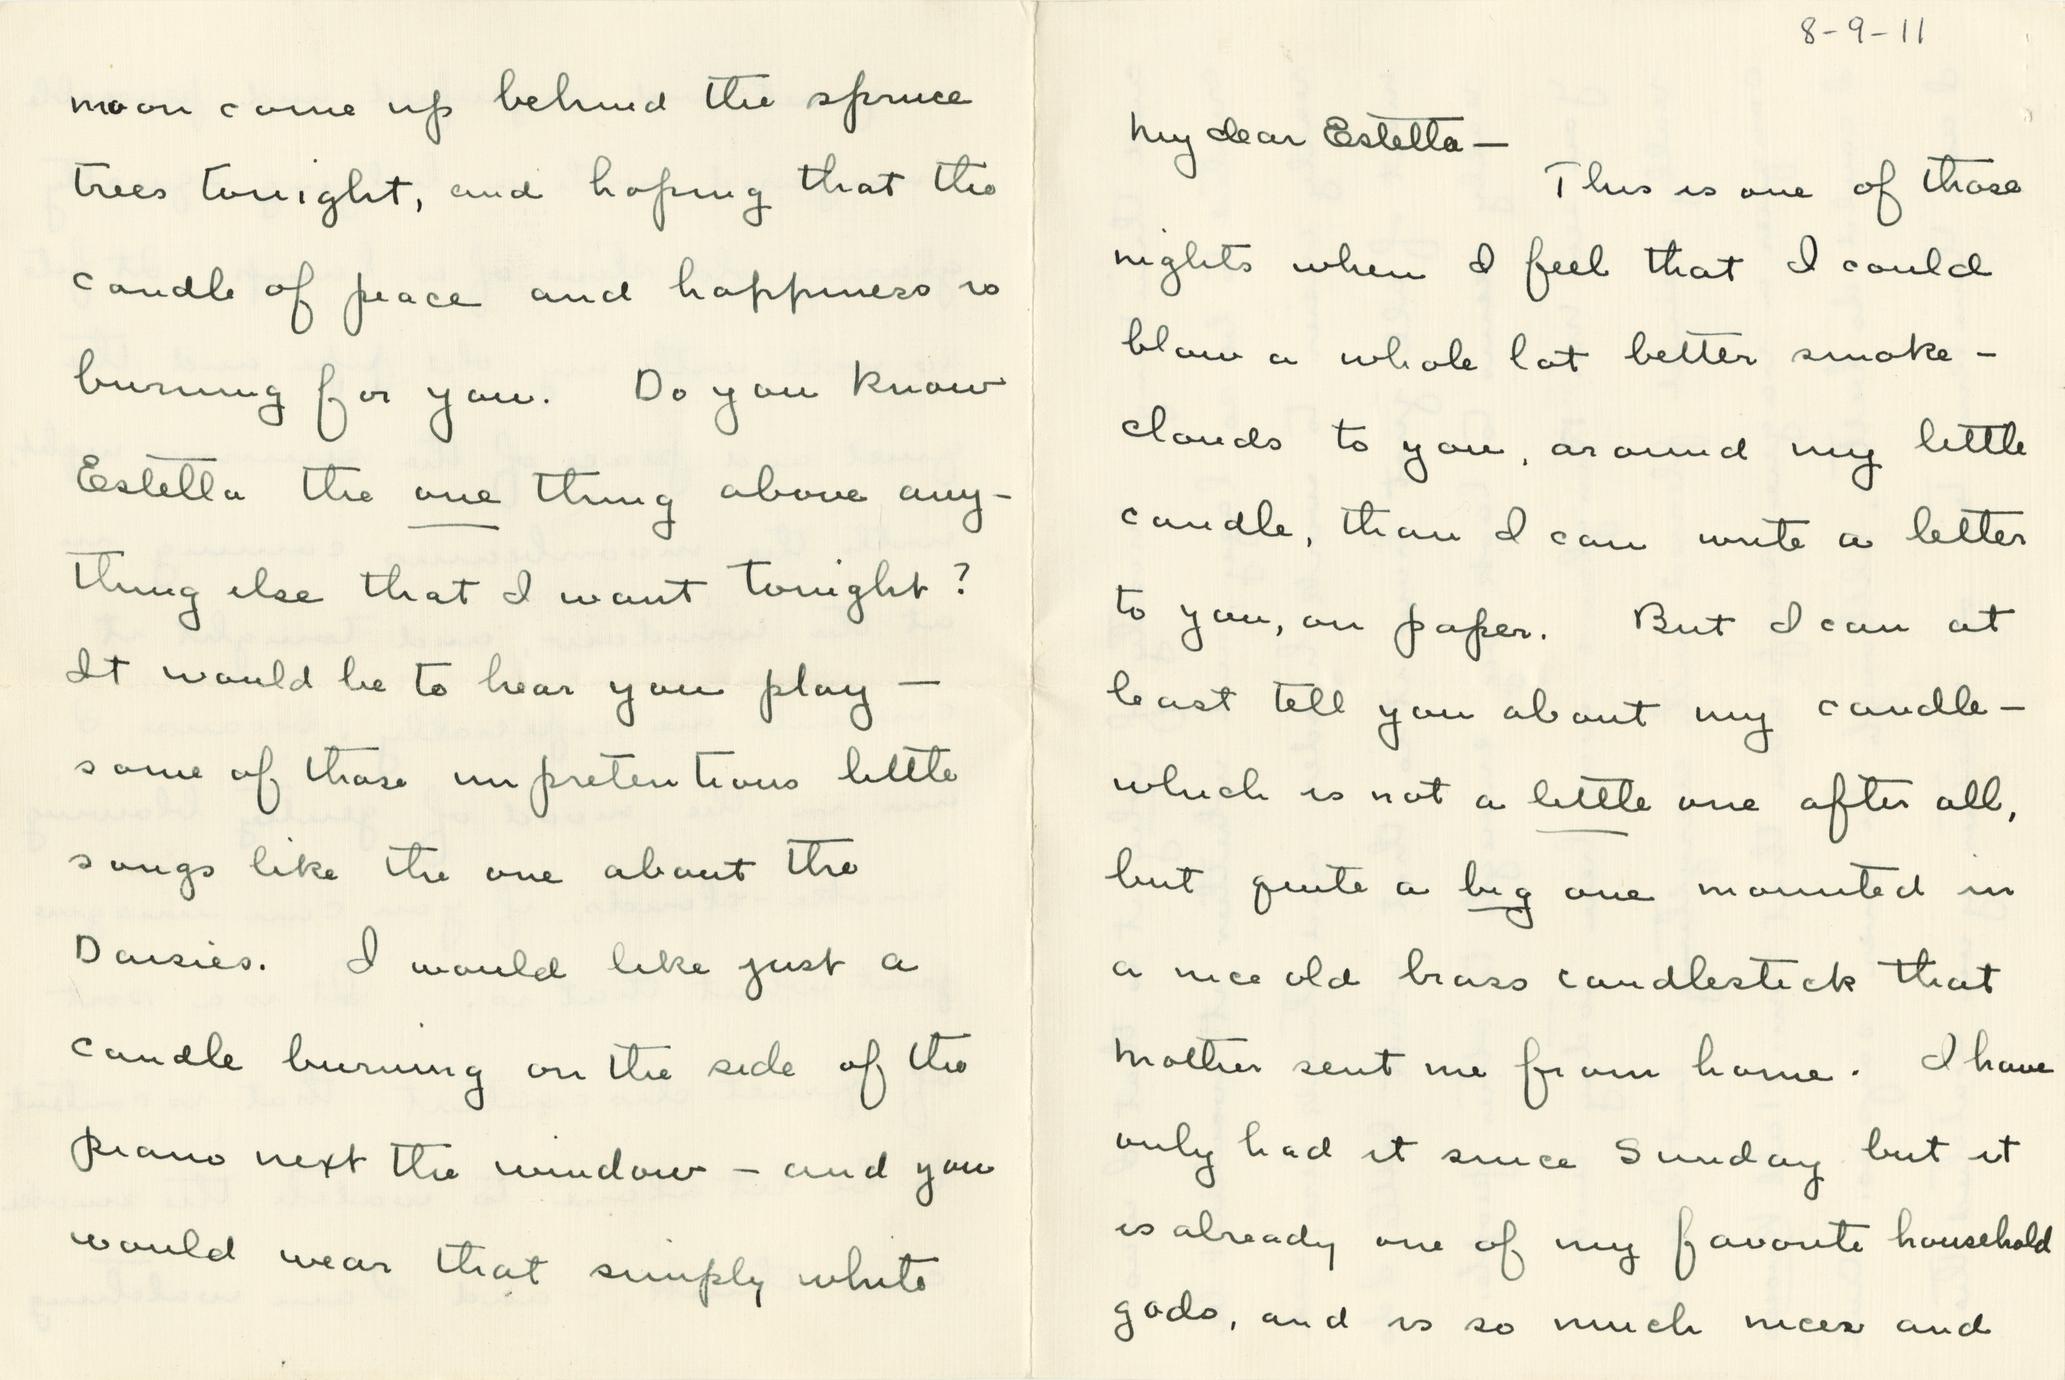 8-9-11
My dear Estella—
This is one of those
nights when I feel that I could
blow a whole lot better smoke-
clouds to you, around my little
candle, than I can write a letter
to you, on paper. But I can at
least tell you about my candle—
which is not a little one after all,
but quite a big one mounted in
a nice old brass candlestick that
Mother sent me from home. I have
only had it since Sunday but it
is already one of my favorite household
gods, and is so much nicer and
moon come up behind the spruce
trees tonight, and hoping that the
candle of peace and happiness is
burning for you. Do you know
Estella the one thing above any-
thing else that I want tonight?
It would be to hear you play—
some of those unpretentious little
songs like the one about the
Daisies. I would like just a
candle burning on the side of the
piano next the window - and you
would wear that simply white